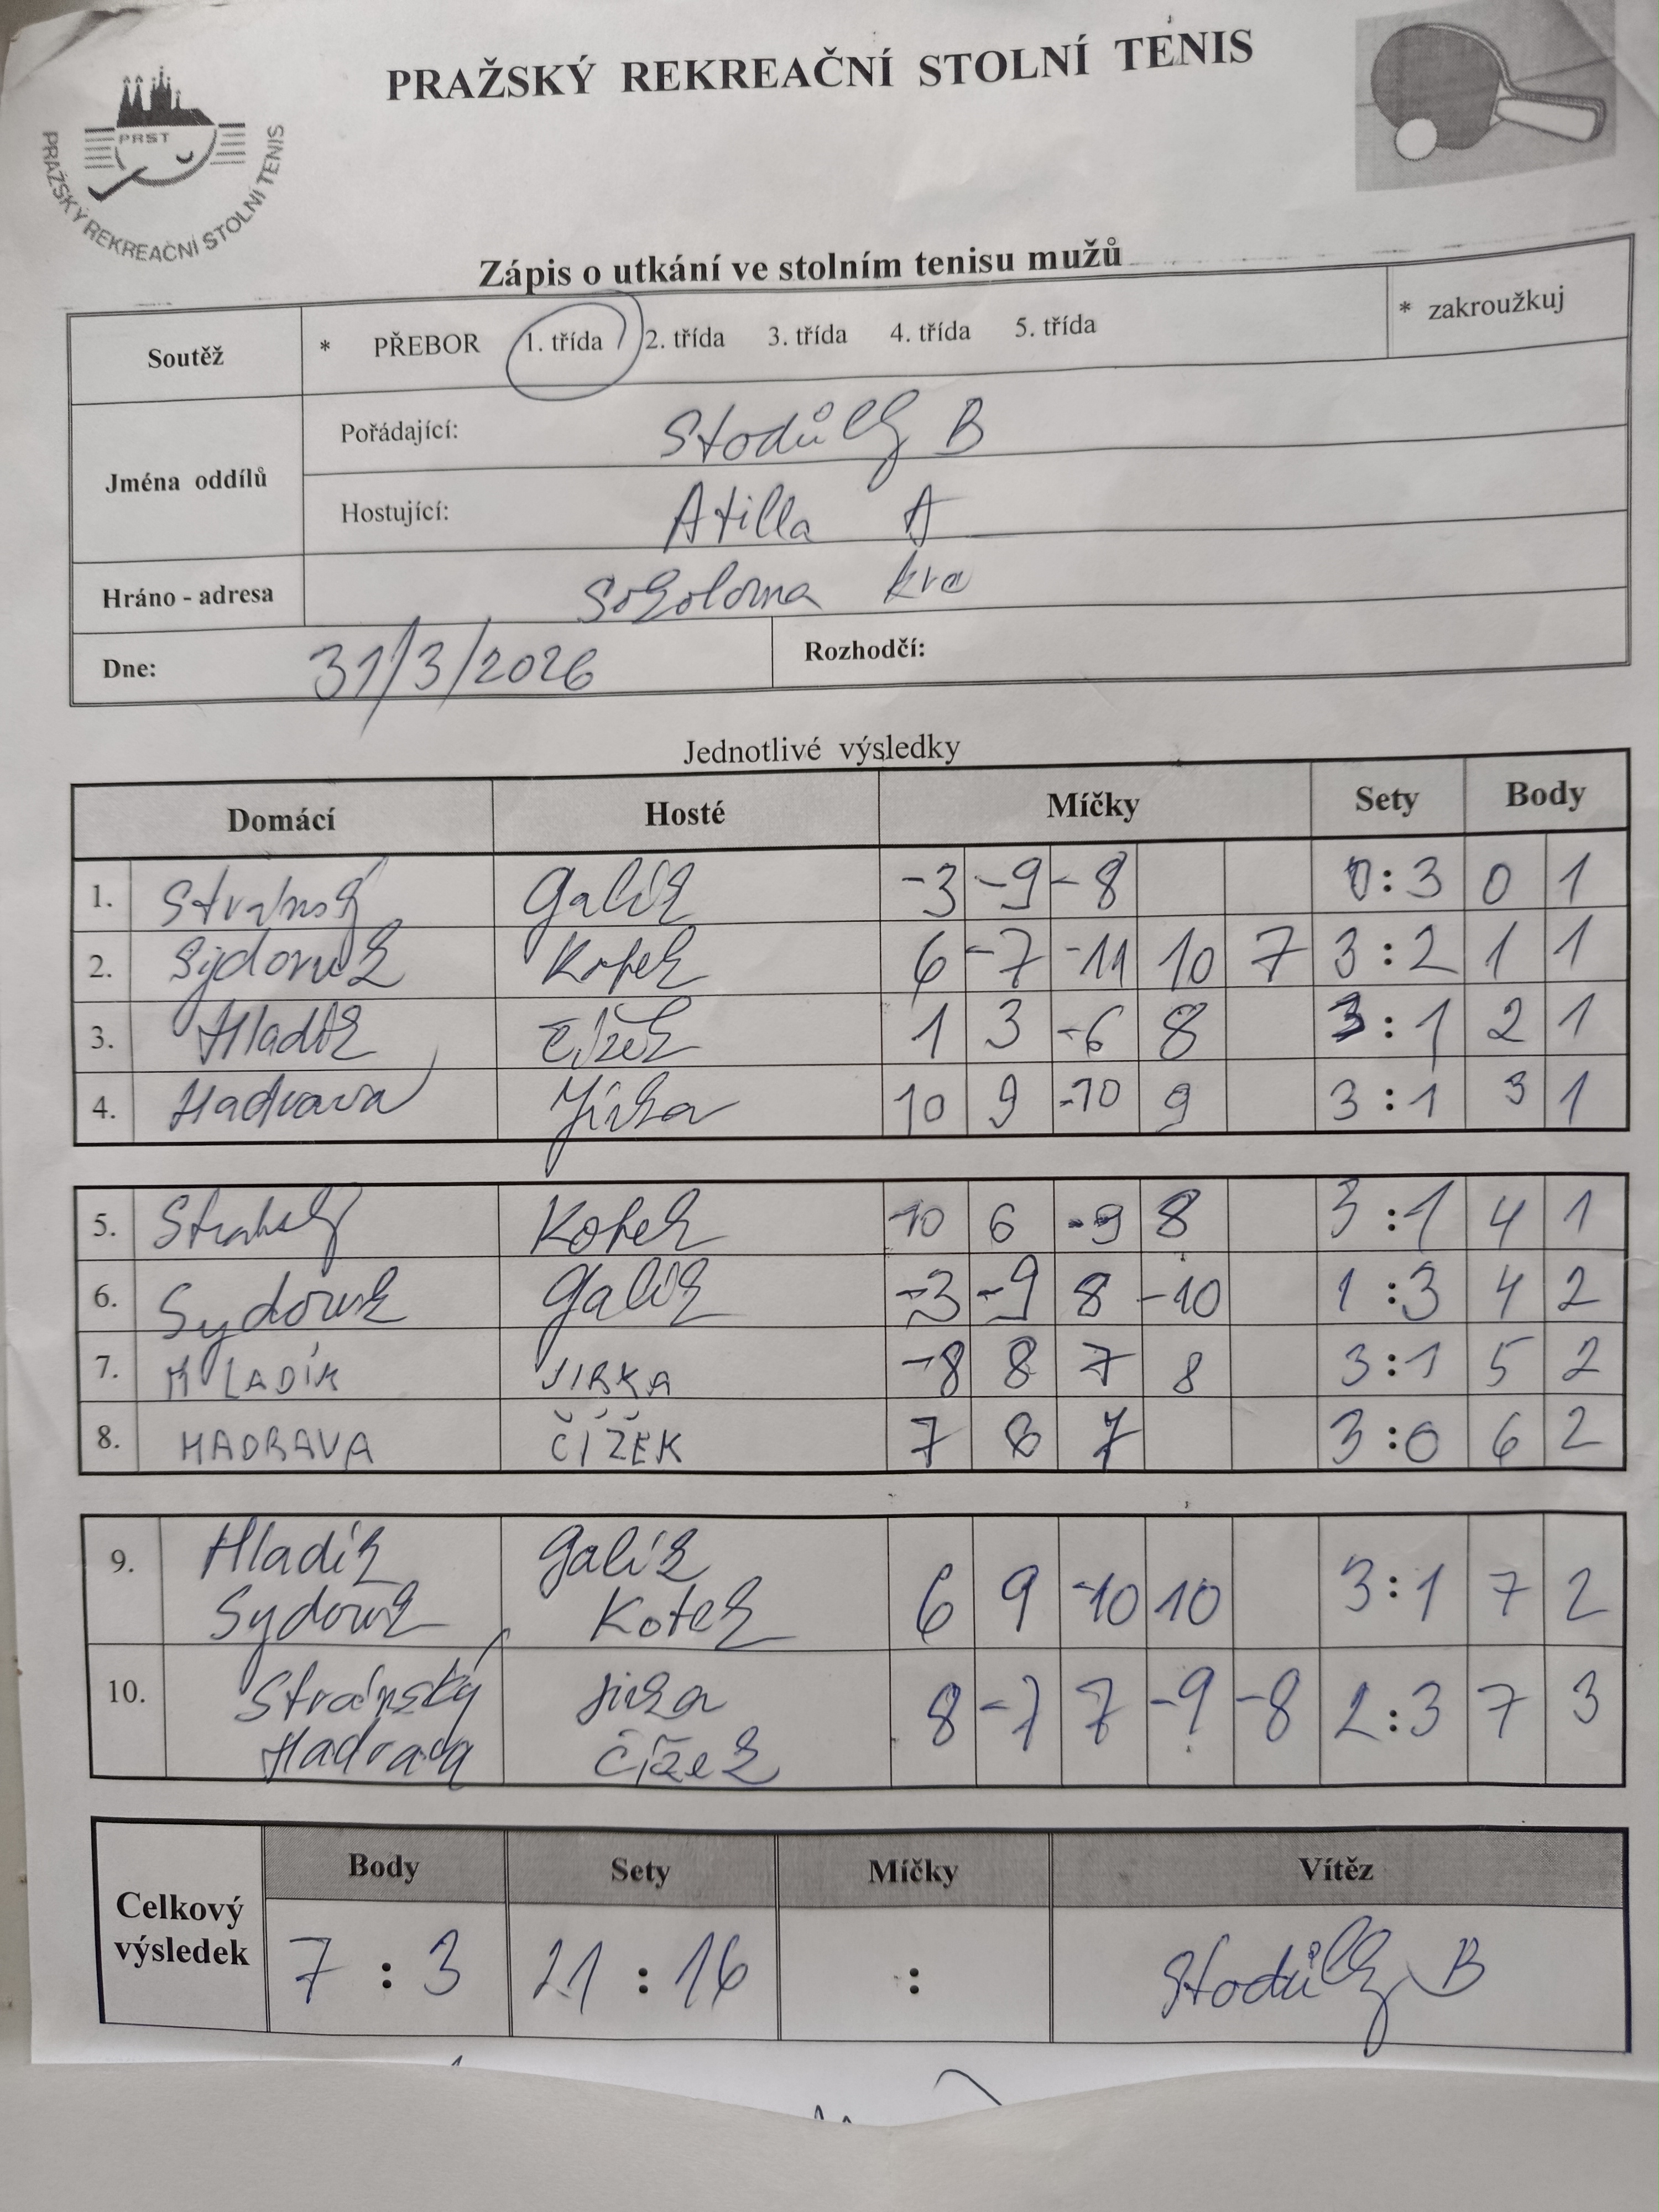 PRAŽSKÝ REKREAČNÍ STOLNÍ TENIS
PRST
PRAŽSKÝ REKREAČNÍ STOLNÍ TENIS
Zápis o utkání ve stolním tenisu mužů
Soutěž * PŘEBOR 1. třída 2. třída 3. třída 4. třída 5. třída * zakroužkuj
Jména oddílů
Pořádající: Stodůlky B
Hostující: Atilla A
Hráno - adresa Sokolovna Krč
Dne: 31/3/2026 Rozhodčí:
Jednotlivé výsledky
Domácí Hosté Míčky Sety Body
1. Stránský Galík -3 -9 -8 0:3 0 1
2. Sydoruk Kotek 6 -7 -11 10 7 3:2 1 1
3. Hladík Čížek 1 3 -6 8 3:1 2 1
4. Hadrava Jirka 10 9 -10 9 3:1 3 1
5. Stránský Kotek 10 6 -9 8 3:1 4 1
6. Sydoruk Galík -3 -9 8 -10 1:3 4 2
7. HLADÍK JIRKA -8 8 7 8 3:1 5 2
8. HADRAVA ČÍŽEK 7 8 7 3:0 6 2
9. Hladík Galík 6 9 -10 10 3:1 7 2
Sydoruk Kotek
10. Stránský Jirka 8 -7 7 -9 -8 2:3 7 3
Hadrava Čížek
Celkový výsledek
Body Sety Míčky Vítěz
7 : 3 21 : 16 : Stodůlky B